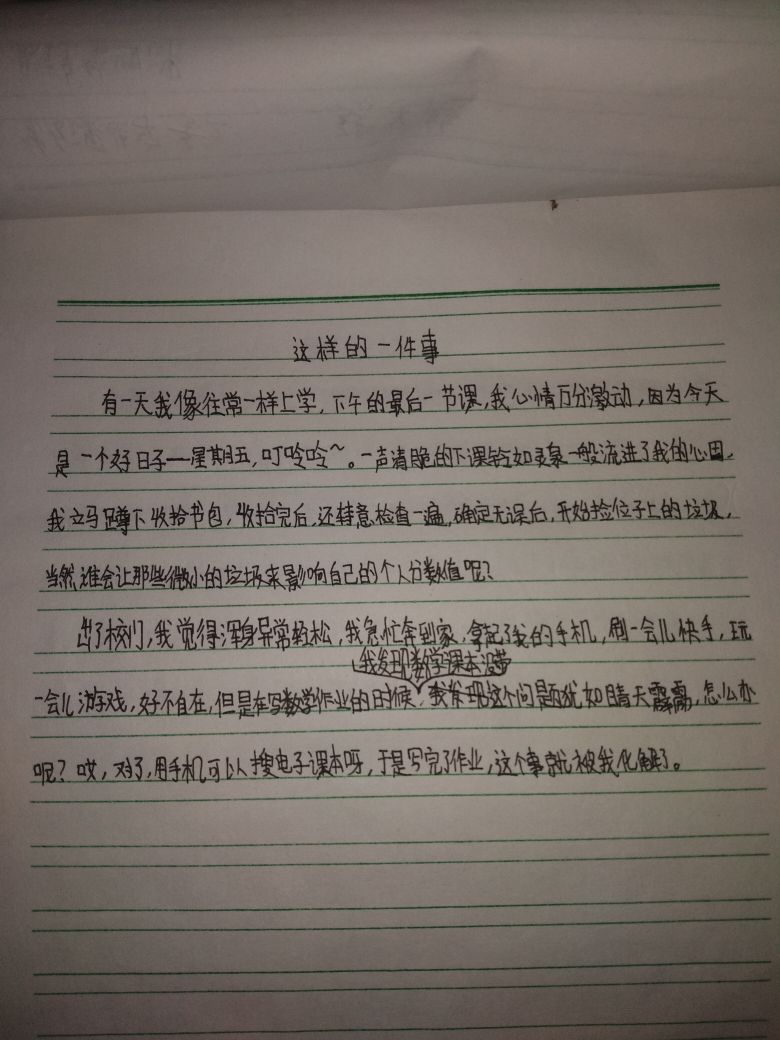 这样的一件事
有一天我像往常一样上学，下午的最后一节课，我心情万分激动，因为今天
是一个好日子——星期五，叮呤呤～。一声清脆的下课铃如灵泉一般流进了我的心田，
我立马蹲下收拾书包，收拾完后，还特意检查一遍，确定无误后，开始捡位子上的垃圾，
当然谁会让那些微小的垃圾来影响自己的个人分数值呢？
出了校门，我觉得浑身异常轻松，我急忙奔到家，拿起了我的手机，刷一会儿快手，玩
我发现数学课本没带
一会儿游戏，好不自在，但是在写数学作业的时候，我发现这个问题犹如晴天霹雳，怎么办
呢？哎，对了，用手机可以搜电子课本呀，于是写完了作业，这个事就被我化解了。